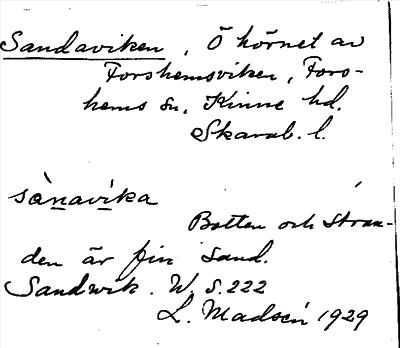 Sandaviken, Ö hörnet av
Forshemsviken, Fors-
hems sn, Kinne hd.
Skarab. l.
sànavíka
Botten och stran-
den är fin sand.
Sandwik. W. S. 222
L. Madsén 1929